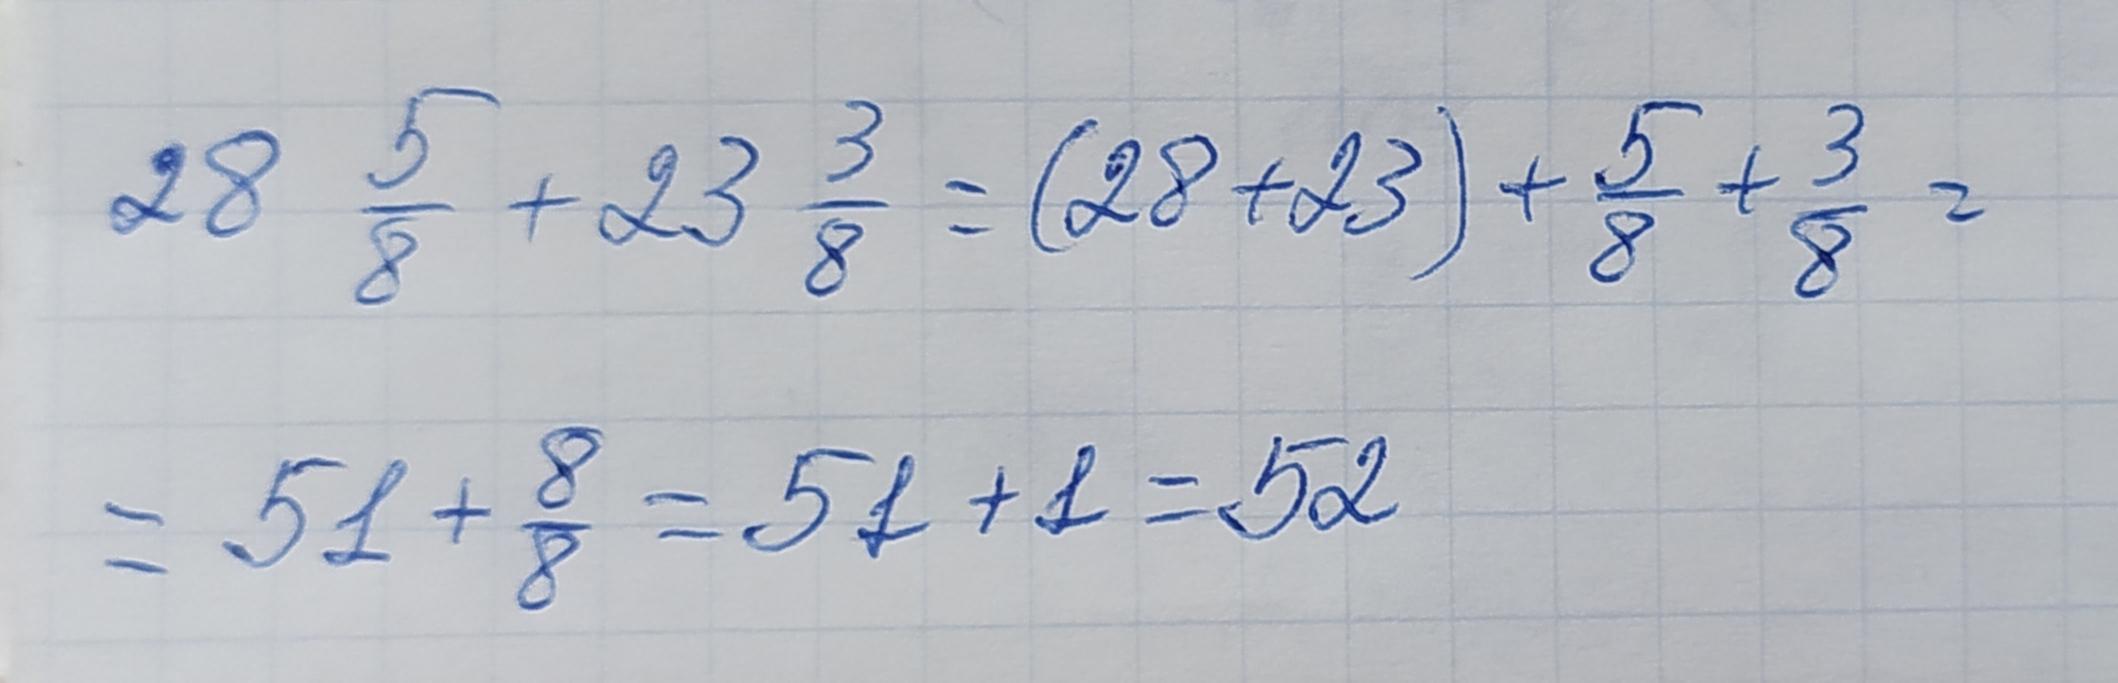 28 5/8 + 23 3/8 = (28+23) + 5/8 + 3/8 =
= 51 + 8/8 = 51 + 1 = 52